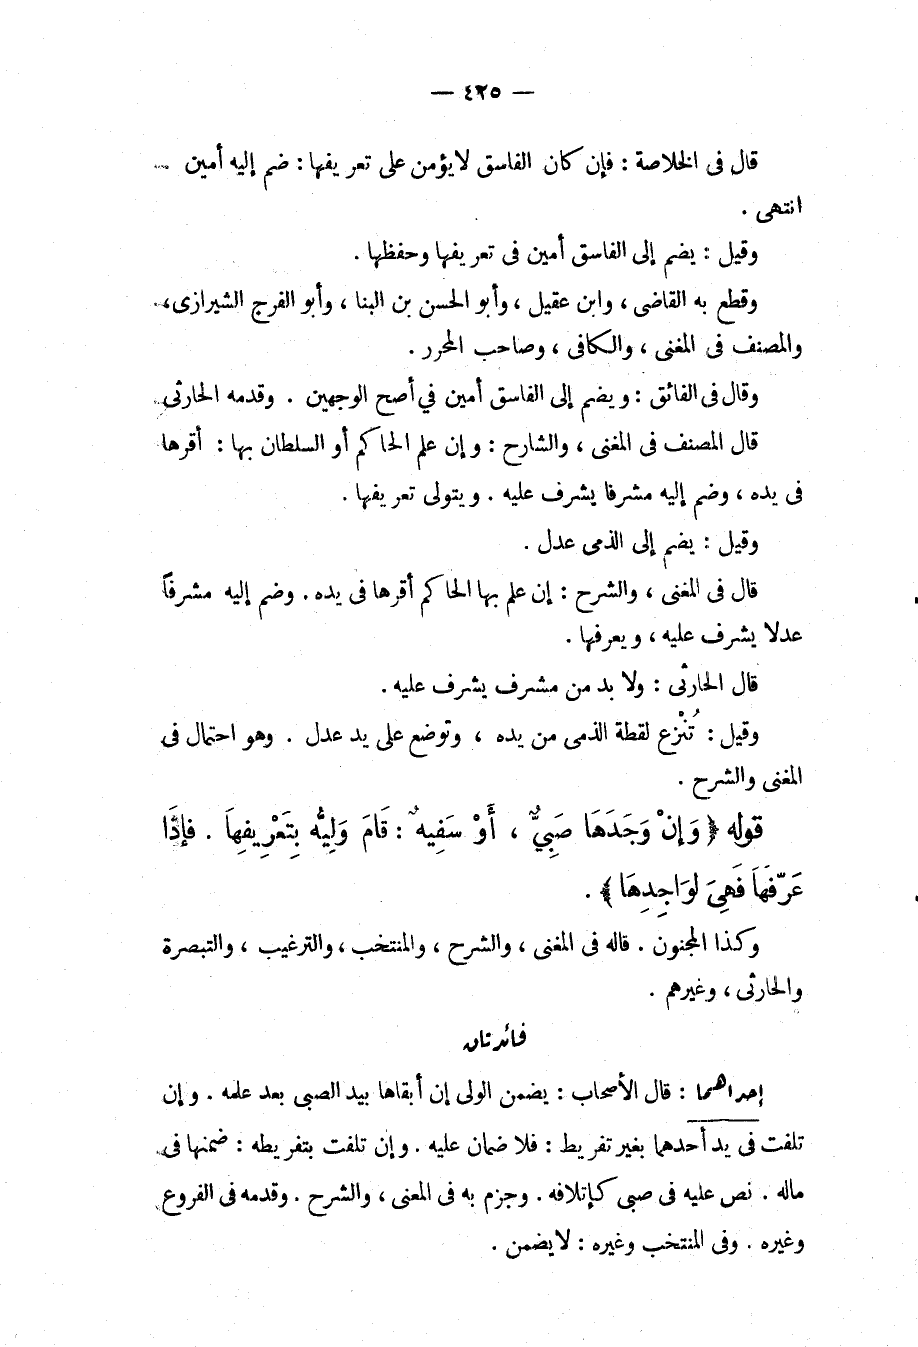 — ٤٢٥ —
قال فى الخلاصة : فإن كان الفاسق لا يؤمن على تعريفها : ضم إليه أمين
انتهى .
وقيل : يضم إلى الفاسق أمين فى تعريفها وحفظها .
وقطع به القاضى ، وابن عقيل ، وأبو الحسن بن البنا ، وأبو الفرج الشيرازى ،
والمصنف فى المغنى ، والكافى ، وصاحب المحرر .
وقال فى الفائق : ويضم إلى الفاسق أمين في أصح الوجهين . وقدمه الحارثى .
قال المصنف فى المغنى ، والشارح : وإن علم الحاكم أو السلطان بها : أقرها
فى يده ، وضم إليه مشرفا يشرف عليه . ويتولى تعريفها .
وقيل : يضم إلى الذمى عدل .
قال فى المغنى ، والشرح : إن علم بها الحاكم أقرها فى يده . وضم إليه مشرفاً
عدلا يشرف عليه ، ويعرفها .
قال الحارثى : ولا بد من مشرف يشرف عليه .
وقيل : تُنْزع لقطة الذمى من يده ، وتوضع على يد عدل . وهو احتمال فى
المغنى والشرح .
قوله ﴿ وَإِنْ وَجَدَهَا صَبِيٌّ ، أَوْ سَفِيهٌ : قَامَ وَلِيُّه بِتَعْرِيفِهَا . فإِذَا
عَرَّفَهَا فَهِىَ لِوَاجِدِهَا ﴾ .
وكذا المجنون . قاله فى المغنى ، والشرح ، والمنتخب ، والترغيب ، والتبصرة
والحارثى ، وغيرهم .
فائدتان
إحداهما : قال الأصحاب : يضمن الولى إن أبقاها بيد الصبى بعد علمه . وإن
تلفت فى يد أحدهما بغير تفريط : فلا ضمان عليه . وإن تلفت بتفريطه : ضمنها فى
ماله . نص عليه فى صبى كإتلافه . وجزم به فى المغنى ، والشرح . وقدمه فى الفروع
وغيره . وفى المنتخب وغيره : لا يضمن .